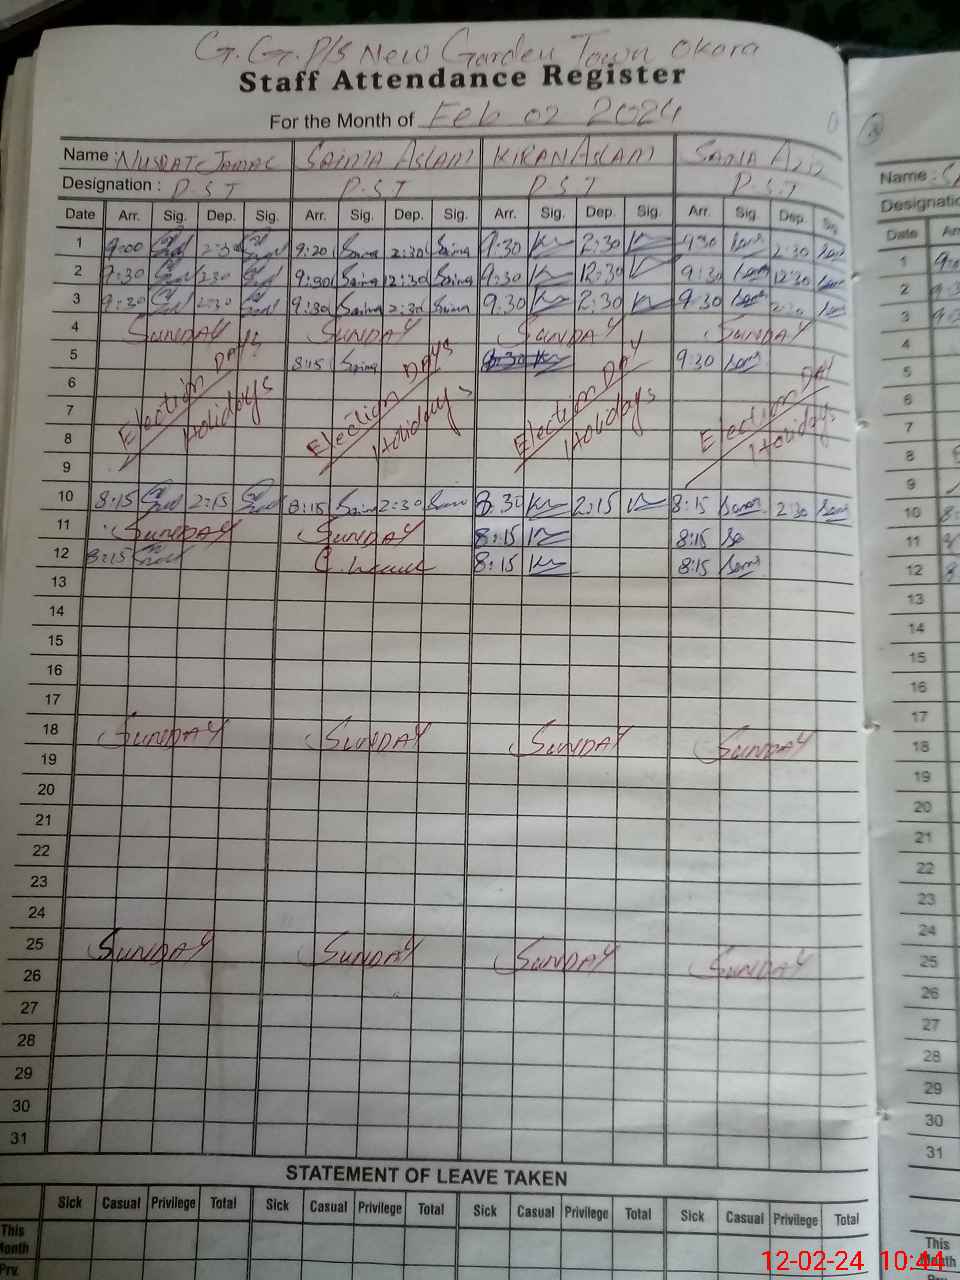 G.G.P/S New Garden Town Okara
Staff Attendance Register
For the Month of Feb 02 2024
Name : NUSRAT JAMAL Saima Aslam KIRAN Aslam Sania Aziz
Designation : P.S.T P.S.T P.S.T P.S.T
Date Arr. Sig. Dep. Sig. Arr. Sig. Dep. Sig. Arr. Sig. Dep. Sig. Arr. Sig. Dep. Sig
1 9:00 2:30 9:20 Saima 2:30 Saima 9:30 2:30 9:30 2:30
2 9:30 9:30 Saima 12:30 Saima 9:30 12:30 9:30 12:30
3 9:30 2:30 9:30 Saima 2:30 Saima 9.30 2:30 9:30
4 SUNDAY SUNDAY SUNDAY SUNDAY
5 8:15 Saima 9:30
6 Election DAYS Holidays Election DAYS Holidays Election DAY Holidays Election DAY Holidays
7
8
9
10 8:15 2:15 8:15 Saima 2:30 8.30 2:15 8:15 2:30
11 SUNDAY SUNDAY 8:15 8:15
12 8:15 C.Leave 8:15 8:15
13
14
15
16
17
18 SUNDAY SUNDAY SUNDAY SUNDAY
19
20
21
22
23
24
25 SUNDAY SUNDAY SUNDAY SUNDAY
26
27
28
29
30
31
STATEMENT OF LEAVE TAKEN
Sick Casual Privilege Total Sick Casual Privilege Total Sick Casual Privilege Total Sick Casual Privilege Total
This Month
Prv.
Name :
Date
1
2
3
4
5
6
7
8
9
10
11
12
13
14
15
16
17
18
19
20
21
22
23
24
25
26
27
28
29
30
31
This
12-02-24 10:44